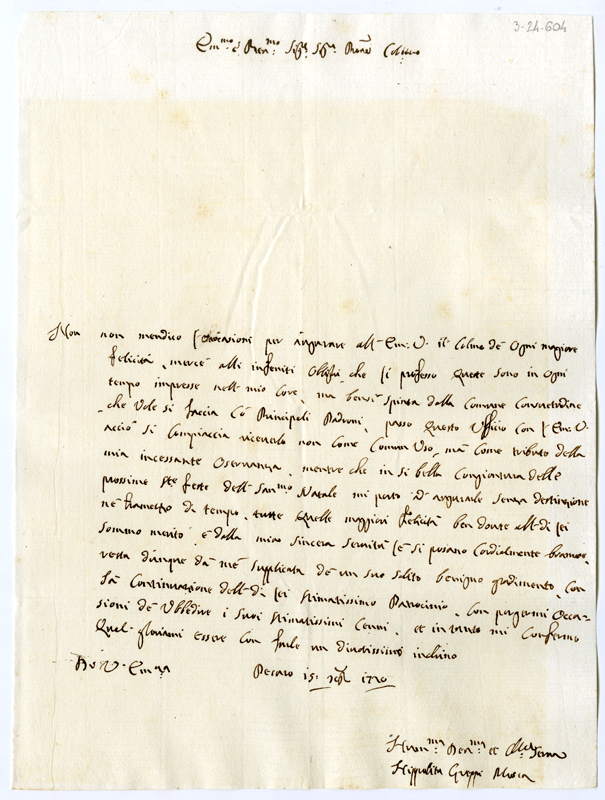 3-24-604
Em.mo e Rev.mo Sig.r Sig.r Pron Col.mo
Non mendico l'occasioni per augurare all' Em: V. il Colmo de Ogni magiore
felicità, mercè alli infeniti Oblighi che li professo Queste sono in Ogni
tempo impresse nell mio Core, ma bensi spinta dalla Comune Consuetudine
che Vole si faccia Co' Principali Padroni, passo Questo Ufficio con l'Em: V.
acciò si Compiaccia riceverlo non Come Comun Uso, mà Come tributo della
mia incessante Oservanza, mentre che in si bella Congiontura delle
prossime S.te feste dell San.mo Natale mi porto ad augurarle senza destinzione
ne framezzo di tempo, tutte Quelle maggiori felicità ben doute all di lei
sommo merito, e dalla mia sincera servitù le si posano Cordialmente bramare,
resta dunque dà mè supplicata de un suo solito benigno gradimento, con
la Continuazione dell di lei stimatissimo Patrocinio, con porgermi Occa-
sioni de Ubbedire i suoi stimatissimi Cenni, et in tanto mi Confermo
Qual gloriami essere con farle un divotissimo inchino
D V. Em.za Pesaro 15: 1720
Hum.ma Dev.ma et Obl.ma Serva
Hippolita Mosca